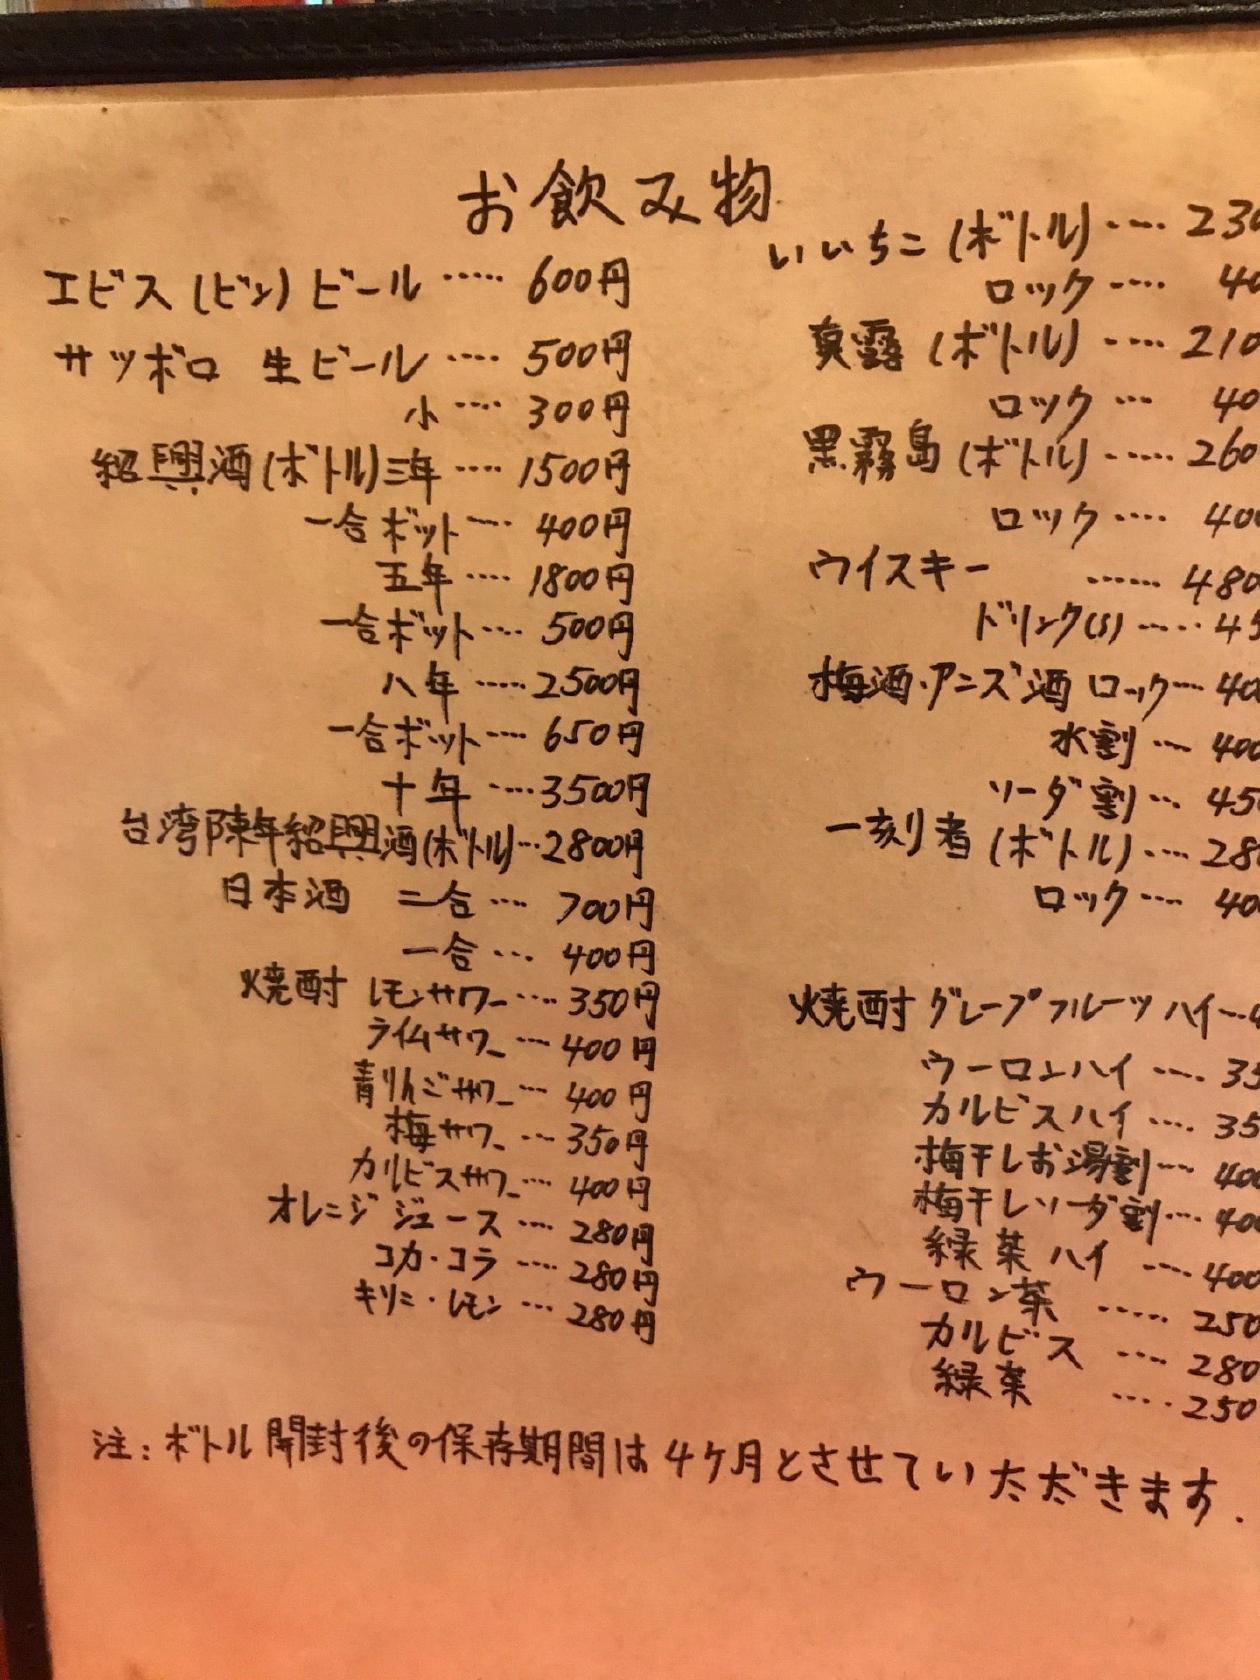 お飲み物
エビス(ビン)ビール ‥‥‥ 600円
サッポロ 生ビール ‥‥ 500円
小 ‥‥ 300円
紹興酒(ボトル)三年 ‥‥ 1500円
一合ポット ‥‥ 400円
五年 ‥‥ 1800円
一合ポット ‥‥ 500円
八年 ‥‥‥ 2500円
一合ポット ‥‥ 650円
十年 ‥‥ 3500円
台湾陳年紹興酒(ボトル) ‥‥ 2800円
日本酒 二合 ‥‥ 700円
一合 ‥‥ 400円
焼酎 レモンサワー ‥‥ 350円
ライムサワー ‥‥ 400円
青りんごサワー ‥‥ 400円
梅サワー ‥‥ 350円
カルピスサワー ‥‥ 400円
オレンジジュース ‥‥ 280円
コカ・コラ ‥‥ 280円
キリン・レモン ‥‥ 280円
いいちこ(ボトル) ‥‥ 230
ロック ‥‥ 40
真露(ボトル) ‥‥ 210
ロック ‥‥ 40
黒霧島(ボトル) ‥‥‥ 260
ロック ‥‥ 400
ウイスキー ‥‥‥ 480
ドリンク(S) ‥‥‥ 45
梅酒・アンズ酒 ロック ‥‥ 40
水割 ‥‥ 400
ソーダ割 ‥‥ 450
一刻者(ボトル) ‥‥ 280
ロック ‥‥ 40
焼酎 グレープフルーツハイ ‥‥ 4
ウーロンハイ ‥‥ 35
カルピスハイ ‥‥ 35
梅干しお湯割 ‥‥ 400
梅干しソーダ割 ‥‥ 400
緑茶ハイ ‥‥ 400
ウーロン茶 ‥‥‥ 250
カルピス ‥‥ 280
緑茶 ‥‥ 250
注:ボトル開封後の保存期間は4ケ月とさせていただきます.